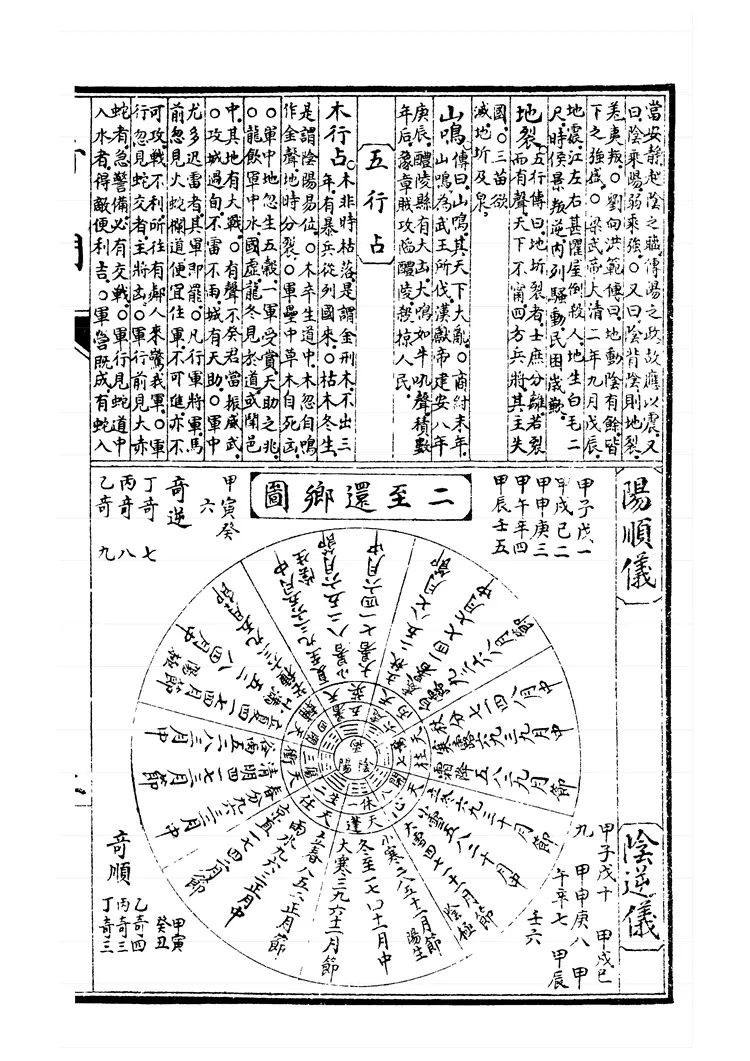 當安靜越陰之職傳陽之政故應以震又
曰陰乘陽弱乘強〇又曰陰背陰則地裂
羌夷叛〇劉向洪範傳曰地動陰有餘皆
下之強盛〇梁武帝大清二年九月戊辰
地震江左右甚㩴屋倒殺人地生白毛二
尺時侯景叛逆內列騷動民困歲歉
地裂五行傳曰地坼裂者士庶分離若裂
而有聲天下不甯四方兵將其主失
國〇三苗欲
滅地坼及泉
山鳴傳曰山鳴其天下大亂〇商紂末年
山鳴為武王所伐漢獻帝建安八年
庚辰醴陵縣有大山大鳴如牛吼聲積數
年后豫章賊攻陷醴陵殺掠人民
五行占
木行占木非時枯落是謂金刑木不出三
年有暴兵從列國來〇枯木冬生
是謂陰陽易位〇木卒生道中木忽自鳴
作金聲地時分裂〇軍壘中草木自死凶
〇軍中地忽生五穀一軍受賞天助之兆
〇龍飲軍中水國虛龍冬見於道或閑邑
中其地有大戰〇有聲不癸君當振威武
〇攻城過旬不雷不雨城有天助〇軍中
尤多迅雷者其軍即罷〇凡行軍將軍馬
前忽見火蛇攔道便宜住軍不可進亦不
可攻戰不利所往有鄰人來驚我軍〇軍
行忽見蛇交者主將凶〇軍行前見大赤
蛇者急警備必有交戰〇軍行見蛇道中
入水者得敵便利吉〇軍營既成有蛇入
陽順儀
甲子戊一
甲戌己二
甲申庚三
甲午辛四
甲辰壬五
二至還鄉圖
甲寅癸
六
奇逆
丁奇 七
丙奇 八
乙奇 九
夏至九三六五月中
陰生
小暑八二五六月節
大暑七一四六月中
立秋二五八七月節
處暑一四七七月中
白露九三六八月節
秋分七一四八月中
寒露六九三九月節
霜降五八二九月中
立冬六九三十月節
小雪五八二十月中
大雪四七一十一月節
陰極
冬至一七四十一月中
陽生
小寒二八五十二月節
大寒三九六十二月中
立春八五二正月節
雨水九六三正月中
驚蟄一七四二月節
春分三九六二月中
清明四一七三月節
谷雨五二八三月中
立夏四一七四月節
小滿五二八四月中
芒種六三九五月節
陰
陽
天蓬
休一
陰逆儀
甲子戊十
九
甲戌己
甲申庚八
甲
午辛七
甲辰
壬六
奇順
甲寅
癸五
乙奇四
丙奇三
丁奇三